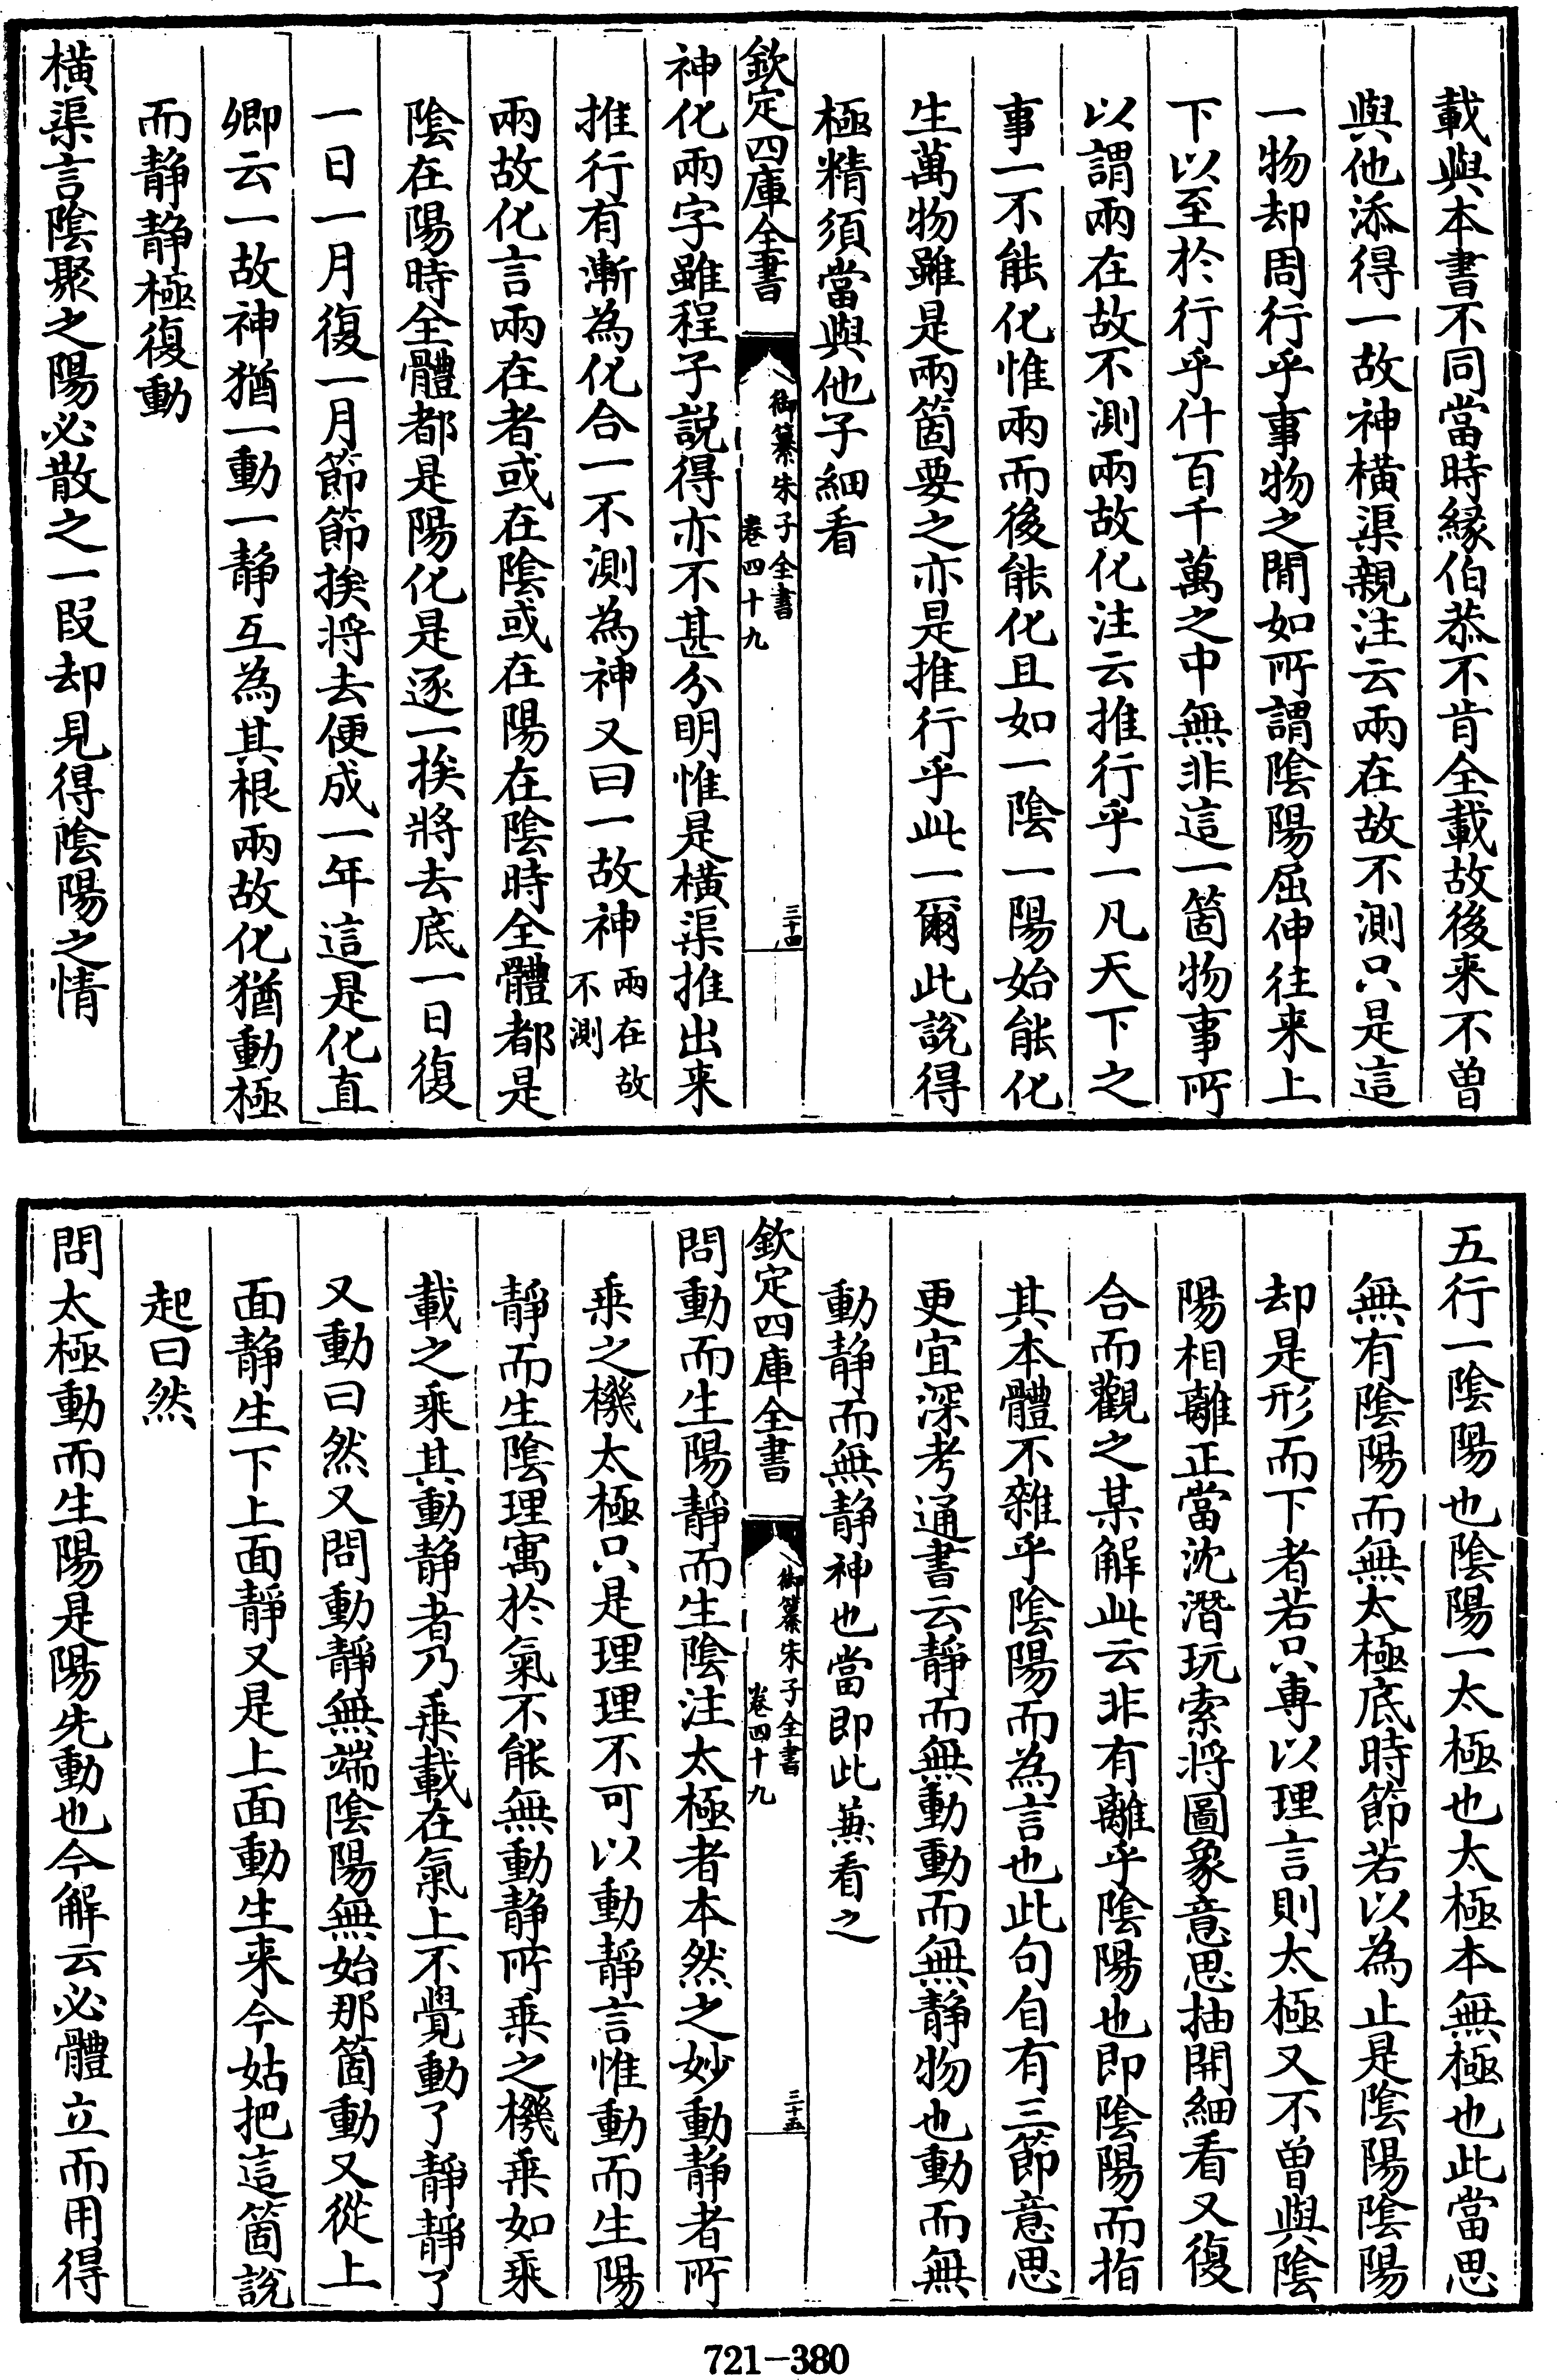 載與本書不同當時緣伯恭不肯全載故後来不曽
與他添得一故神橫渠親注云兩在故不測只是這
一物却周行乎事物之間如所謂陰陽屈伸往来上
下以至於行乎什百千萬之中無非這一箇物事所
以謂兩在故不測兩故化注云推行乎一凡天下之
事一不能化惟兩而後能化且如一陰一陽始能化
生萬物雖是兩箇要之亦是推行乎此一爾此說得
極精須當與他子細看
欽定四庫全書
御纂朱子全書
卷四十九
三十四
神化兩字雖程子説得亦不甚分明惟是橫渠推出来
推行有漸為化合一不測為神又曰一故神兩在故不測
兩故化言兩在者或在陰或在陽在陰時全體都是
陰在陽時全體都是陽化是逐一挨將去底一日復
一日一月復一月節節挨将去便成一年這是化直
卿云一故神猶一動一静互為其根兩故化猶動極
而静静極復動
橫渠言陰聚之陽必散之一段却見得陰陽之情
五行一陰陽也陰陽一太極也太極本無極也此當思
無有陰陽而無太極底時節若以為止是陰陽陰陽
却是形而下者若只専以理言則太極又不曽與陰
陽相離正當沈潛玩索将圖象意思抽開細看又復
合而觀之某解此云非有離乎陰陽也即陰陽而指
其本體不雜乎陰陽而為言也此句自有三節意思
更宜深考通書云靜而無動動而無静物也動而無
動静而無静神也當即此蕪看之
欽定四庫全書
御纂朱子全書
卷四十九
三十五
問動而生陽靜而生陰注太極者本然之妙動静者所
乗之機太極只是理理不可以動靜言惟動而生陽
靜而生陰理寓於氣不能無動静所乗之機乗如乗
載之乘其動静者乃乗載在氣上不覺動了靜靜了
又動曰然又問動靜無端陰陽無始那箇動又從上
面静生下上面靜又是上面動生来今姑把這箇說
起曰然
問太極動而生陽是陽先動也今解云必體立而用得